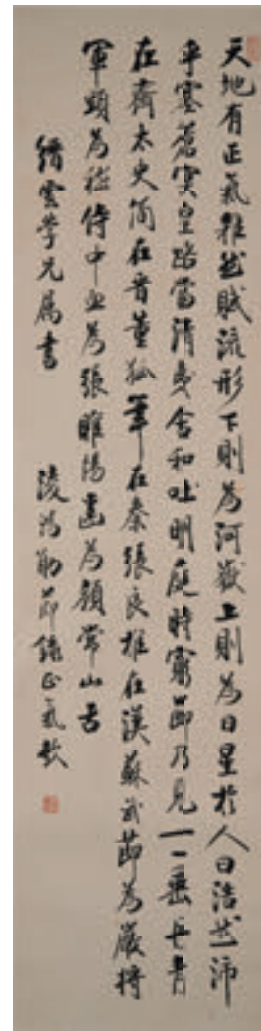 天地有正氣雜然賦流形下則為河嶽上則為日星於人曰浩然沛
乎塞蒼冥皇路當清夷含和吐明庭時窮節乃見一一垂丹青
在齊太史簡在晉董狐筆在秦張良椎在漢蘇武節為嚴將
軍頭為嵇侍中血為張睢陽齒為顏常山舌
縉雲學兄屬書 淩鴻勛節錄正氣歌